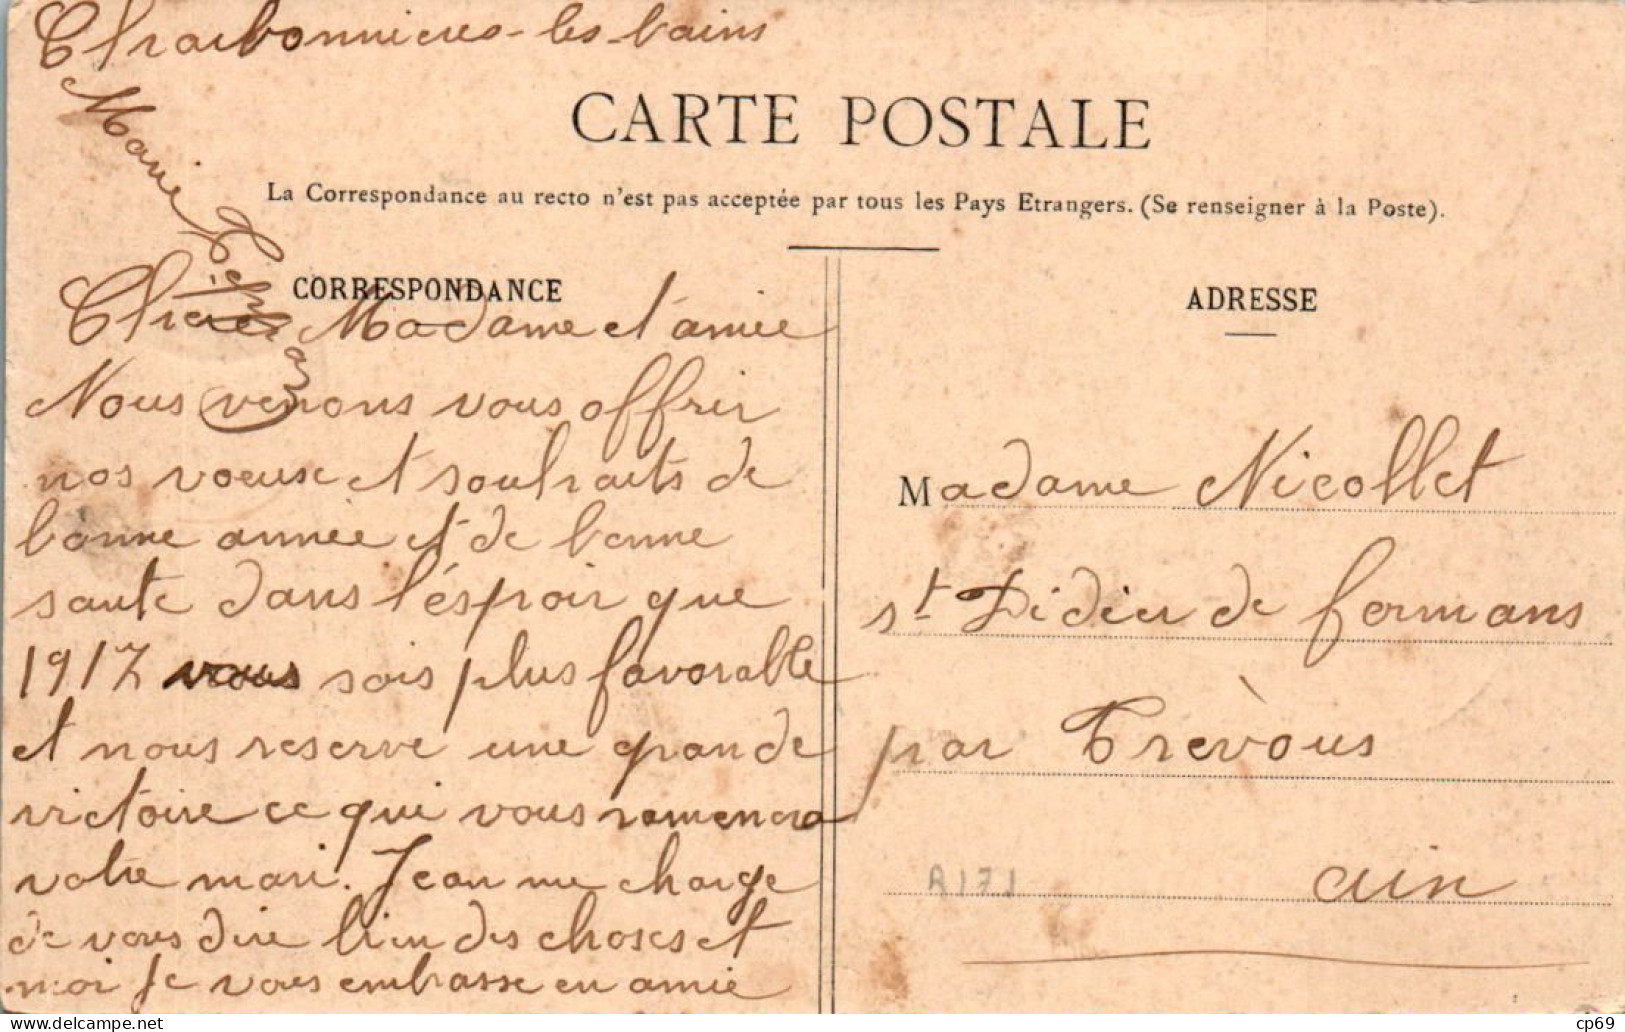 Charbonnieres-les-bains
CARTE POSTALE
La Correspondance au recto n'est pas acceptée par tous les Pays Etrangers. (Se renseigner à la Poste).
CORRESPONDANCE
Chère Madame et amie
Nous venons vous offrir
nos voeuse et souhaits de
bonne année et de bonne
sante dans l'éspoir que
1917 vous sois plus favorable
et nous reserve une grande
victoire ce qui vous ramenera
votre mari. Jean me charge
de vous dire bien des choses et
moi je vous embrasse en amie
Marie
ADRESSE
Madame Nicollet
st Didier de formans
par Trèvous
ain
A171
cp69